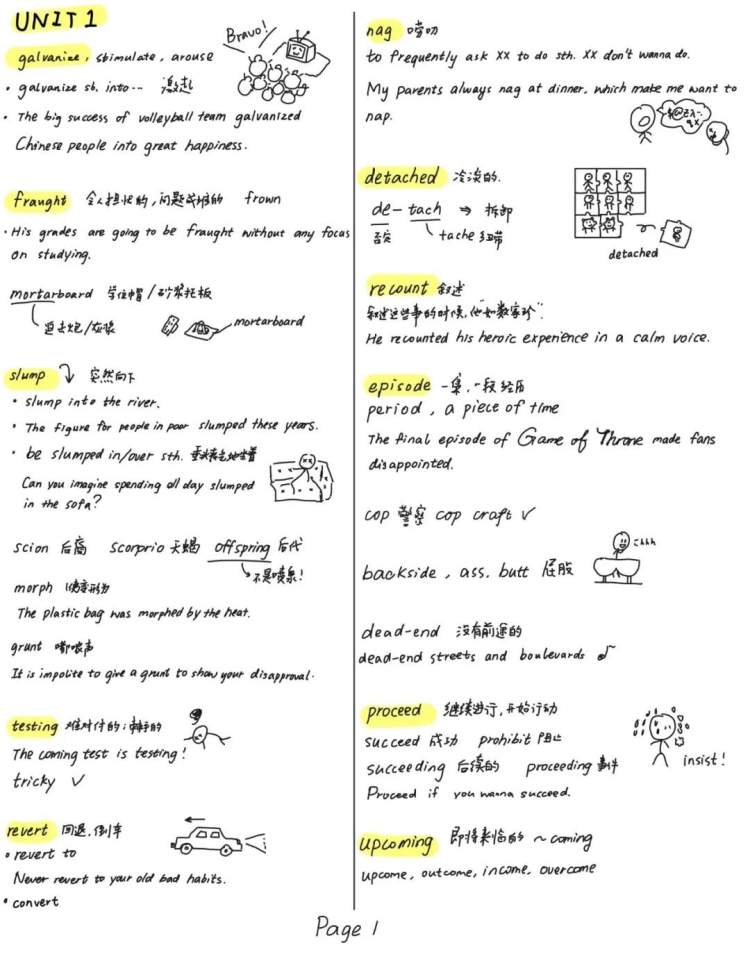 UNIT 1
galvanize, stimulate, arouse
Bravo!
• galvanize sb. into… 激起
• The big success of volleyball team galvanized
Chinese people into great happiness.
fraught 令人担忧的,问题成堆的 frown
• His grades are going to be fraught without any focus
on studying.
mortarboard 学位帽/砂浆托板
迫击炮/灰浆
mortarboard
slump 突然向下
• slump into the river.
• The figure for people in poor slumped these years.
• be slumped in/over sth.
Can you imagine spending all day slumped
in the sofa?
scion 后裔 scorprio 天蝎 offspring 后代
不是喷泉!
morph 使变形为
The plastic bag was morphed by the heat.
grunt 嘟哝声
It is impolite to give a grunt to show your disapproval.
testing 难对付的;棘手的
The coming test is testing!
tricky ✓
revert 回退,倒车
• revert to
Never revert to your old bad habits.
• convert
nag 唠叨
to frequently ask xx to do sth. xx don't wanna do.
My parents always nag at dinner, which make me want to
nap.
detached 冷淡的.
de-tach ⇒ 拆卸
否定
tache 纽带
detached
recount 叙述
叙述这些事的时候,他"如数家珍".
He recounted his heroic experience in a calm voice.
episode 一集,一段经历
period, a piece of time
The final episode of Game of Throne made fans
disappointed.
cop 警察 cop craft ✓
backside, ass, butt 屁股
dead-end 没有前途的
dead-end streets and boulevards
proceed 继续进行,开始行动
succeed 成功 prohibit 阻止
succeeding 后续的 proceeding 事件
insist!
Proceed if you wanna succeed.
upcoming 即将来临的 ~coming
upcome, outcome, income, overcome
Page 1